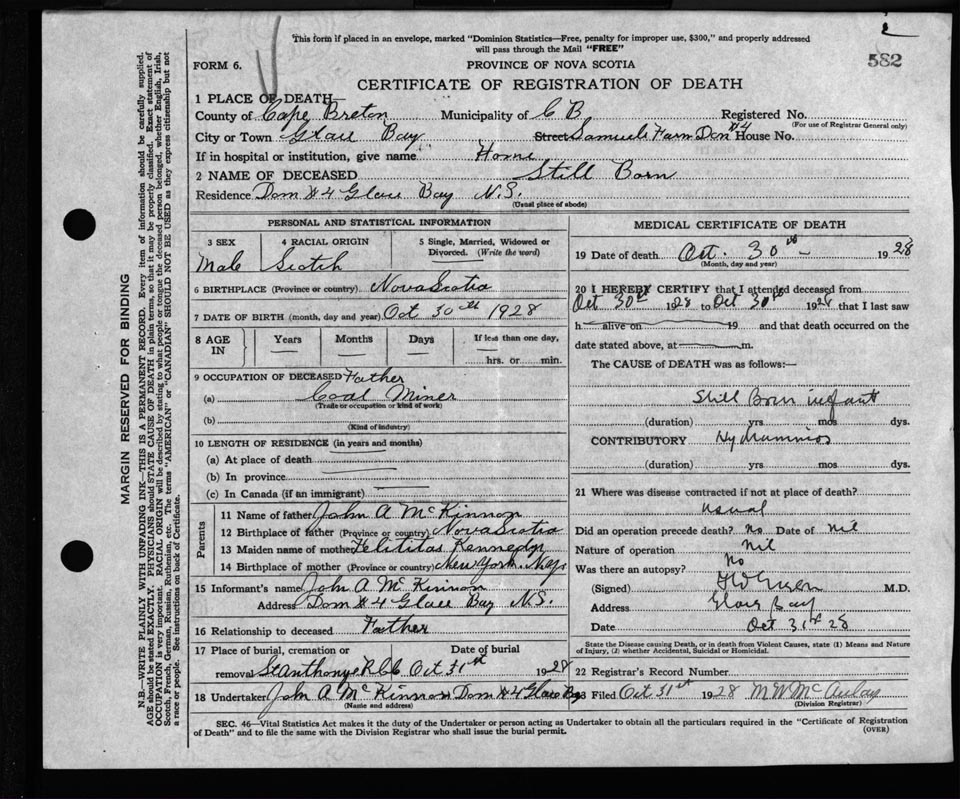 This form if placed in an envelope, marked "Dominion Statistics—Free, penalty for improper use, $300," and properly addressed
will pass through the Mail "FREE"
582
FORM 6. PROVINCE OF NOVA SCOTIA
CERTIFICATE OF REGISTRATION OF DEATH
1 PLACE OF DEATH
County of Cape Breton Municipality of C B Registered No.
(For use of Registrar General only)
City or Town Glace Bay Street Samuels Farm Dom #4 House No.
If in hospital or institution, give name Home
2 NAME OF DECEASED Still Born
Residence Dom #4 Glace Bay N.S.
(Usual place of abode)
PERSONAL AND STATISTICAL INFORMATION
3 SEX 4 RACIAL ORIGIN 5 Single, Married, Widowed or
Divorced. (Write the word)
Male Scotch
6 BIRTHPLACE (Province or country) Nova Scotia
7 DATE OF BIRTH (month, day and year) Oct 30th 1928
8 AGE IN Years Months Days If less than one day,
hrs. or min.
9 OCCUPATION OF DECEASED Father
(a) Coal Miner
(Trade or occupation or kind of work)
(b)
(Kind of industry)
10 LENGTH OF RESIDENCE (in years and months)
(a) At place of death
(b) In province
(c) In Canada (if an immigrant)
Parents
11 Name of father John A McKinnon
12 Birthplace of father (Province or country) Nova Scotia
13 Maiden name of mother Felititas Kennedy
14 Birthplace of mother (Province or country) New York. N.Y.
15 Informant's name John A McKinnon
Address Dom #4 Glace Bay N.S.
16 Relationship to deceased Father
17 Place of burial, cremation or Date of burial
removal St Anthonye R.C.C Oct 31st 1928
18 Undertaker John A McKinnon Dom #4 Glace Bay
(Name and address)
MEDICAL CERTIFICATE OF DEATH
19 Date of death Oct. 30th – 1928
(Month, day and year)
20 I HEREBY CERTIFY that I attended deceased from
Oct 30th 1928 to Oct 30th 1928 that I last saw
h alive on 19 and that death occurred on the
date stated above, at m.
The CAUSE of DEATH was as follows:—
Still Born infant
(duration) yrs mos dys.
CONTRIBUTORY Hydramnios
(duration) yrs mos dys.
21 Where was disease contracted if not at place of death?
usual
Did an operation precede death? No Date of nil
Nature of operation Nil
Was there an autopsy? No
(Signed) M.D.
Address Glace Bay
Date Oct 31st 28
State the Disease causing Death, or in death from Violent Causes, state (1) Means and Nature
of Injury, (2) whether Accidental, Suicidal or Homicidal.
22 Registrar's Record Number
23 Filed Oct 31st 1928 M W McAulay
(Division Registrar)
SEC. 46—Vital Statistics Act makes it the duty of the Undertaker or person acting as Undertaker to obtain all the particulars required in the "Certificate of Registration
of Death" and to file the same with the Division Registrar who shall issue the burial permit. (OVER)
MARGIN RESERVED FOR BINDING
N.B.—WRITE PLAINLY WITH UNFADING INK—THIS IS A PERMANENT RECORD. Every item of information should be carefully supplied.
AGE should be stated EXACTLY. PHYSICIANS should STATE CAUSE OF DEATH in plain terms, so that it may be properly classified. Exact statement of
OCCUPATION is very important. RACIAL ORIGIN will be described by stating to what people or tongue the deceased person belonged, whether English, Irish,
Scotch, French, German, Russian, Ruthenian, etc. The terms "AMERICAN" or "CANADIAN" SHOULD NOT BE USED as they express citizenship but not
a race or people. See instructions on back of Certificate.